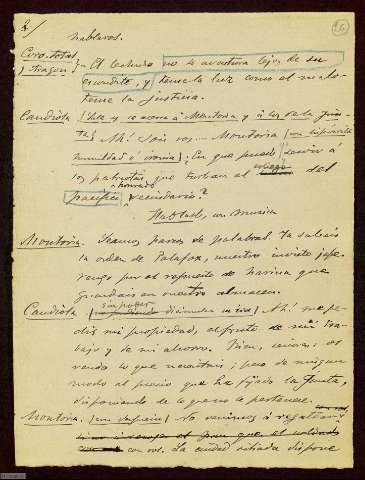 2/
hablaros.
Coro, totas
y Aragon } — El lechuzo no se aventura lejos de su
escondite, y teme la luz como el malo
teme la justicia.
Candiola (Sale y se acerca á Montoria y á los de la Jun-
ta) Ah! Sois vos... Montoria (con
humildad é ironia) En que puedo servir á
los patriotas que turban el sosiego del
pacifico honrado vecindario?
Hablad,
Montoria. Seamos parcos de palabras. Ya sabeis
la orden de Palafox, nuestro invicto jefe.
Vengo por el repuesto de harina que
guardais en vuestro almacen.
Candiola (sin poder ) Ah! me pe-
dis mi propiedad, el fruto de mi tra-
bajo y de mi ahorro. Bien, señores: os
vendo lo que necesitais; pero de ningun
modo al precio que ha fijado la Junta,
disponiendo de lo que no le pertenece.
Montoria. (con ) No venimos á regatear
con vos. La ciudad sitiada dispone